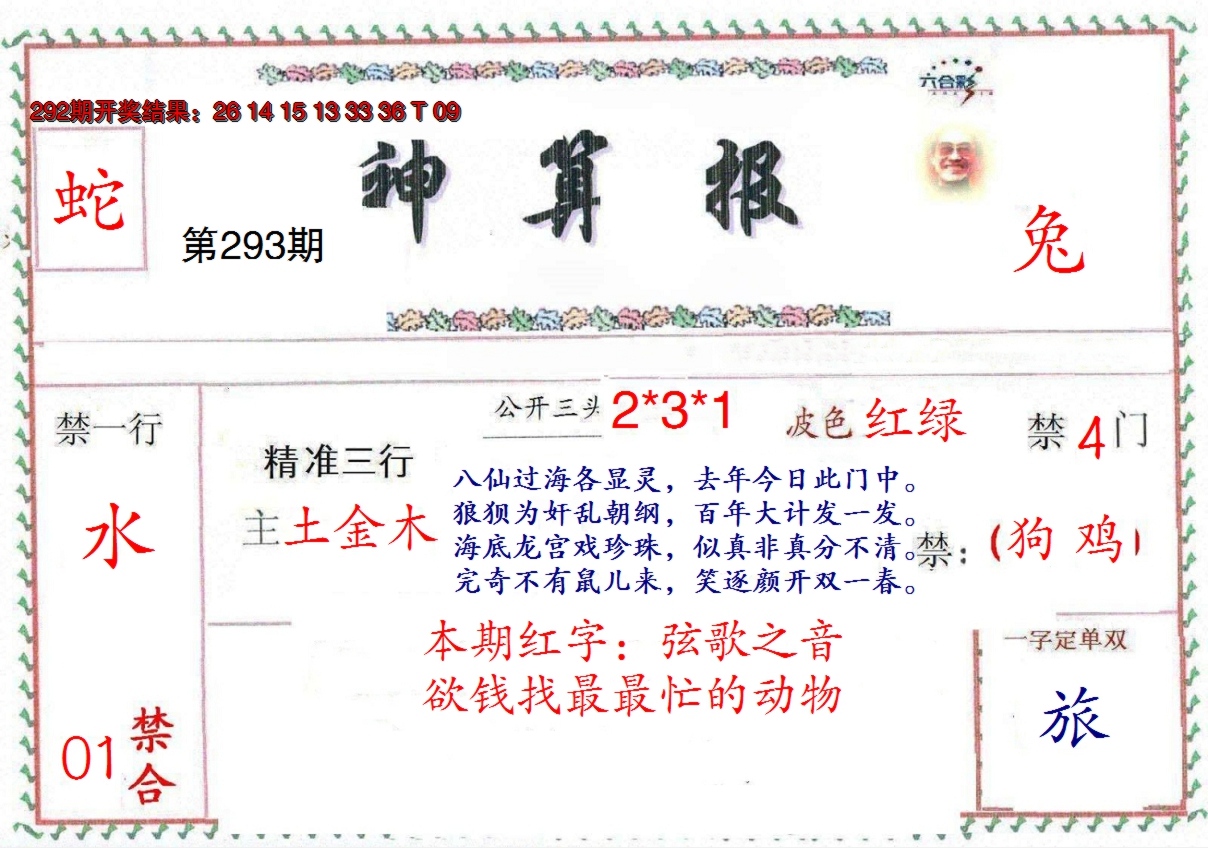 六合彩
292期开奖结果：26 14 15 13 33 36 T 09
神算报
蛇
第293期
兔
禁一行
水
01
禁合
公开三头 2*3*1
波色 红绿
禁 4 门
精准三行
主土金木
八仙过海各显灵，去年今日此门中。
狼狈为奸乱朝纲，百年大计发一发。
海底龙宫戏珍珠，似真非真分不清。
完奇不有鼠儿来，笑逐颜开双一春。
禁：（狗 鸡）
本期红字：弦歌之音
欲钱找最最忙的动物
一字定单双
旅